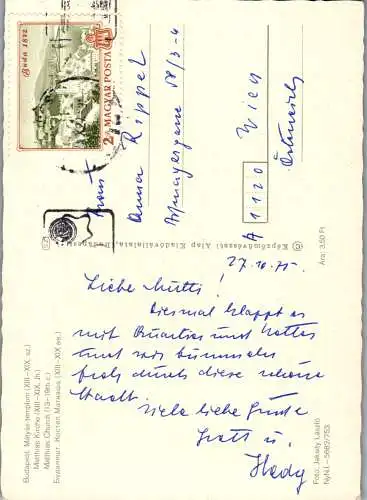 Buda 1872
2 Ft MAGYAR POSTA
Frau
Anna Rippel
Aßmayergasse 58/3-4
A 1120 Wien
Österreich
Képzőművészeti Alap Kiadóvállalata, Budapest
27.10.75
Liebe Mutti!
Diesmal klappt es
mit Quartier und Wetter
und wir bummeln
froh durch diese schöne
Stadt.
Viele liebe Grüße
u.
Hedy
Budapest. Mátyás-templom (XIII–XIX. sz.)
Matthias Kirche (XIII–XIX. Jh.)
Matthias Church (13–19th c.)
Будапешт. Костел Матяша (XIII–XIX вв.)
Ára: 3,50 Ft
Foto: Jakády László
NyNJ.—5682/753.